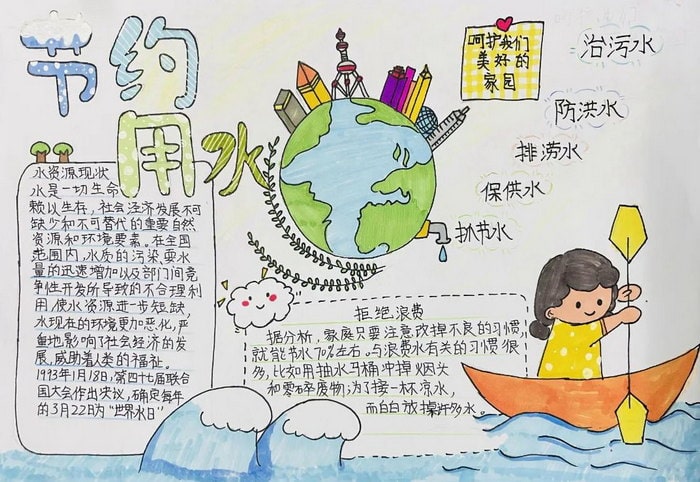 节约
用水
呵护我们
美好的
家园
治污水
防洪水
排涝水
保供水
抓节水
水资源现状
水是一切生命
赖以生存，社会经济发展不可
缺少和不可替代的重要自然
资源和环境要素。在全国
范围内，水质的污染需水
量的迅速增加以及部门间竞
争性开发所导致的不合理利
用，使水资源进一步短缺，
水现在的环境更加恶化，严
重地影响了社会经济的发
展，威胁着人类的福祉。
1993年1月18日，第四十七届联合
国大会作出决议，确定每年
的3月22日为“世界水日”
拒绝浪费
据分析，家庭只要注意改掉不良的习惯，
就能节水70%左右。与浪费水有关的习惯很
多，比如用抽水马桶冲掉烟头
和零碎废物；为了接一杯凉水，
而白白放掉许多水。